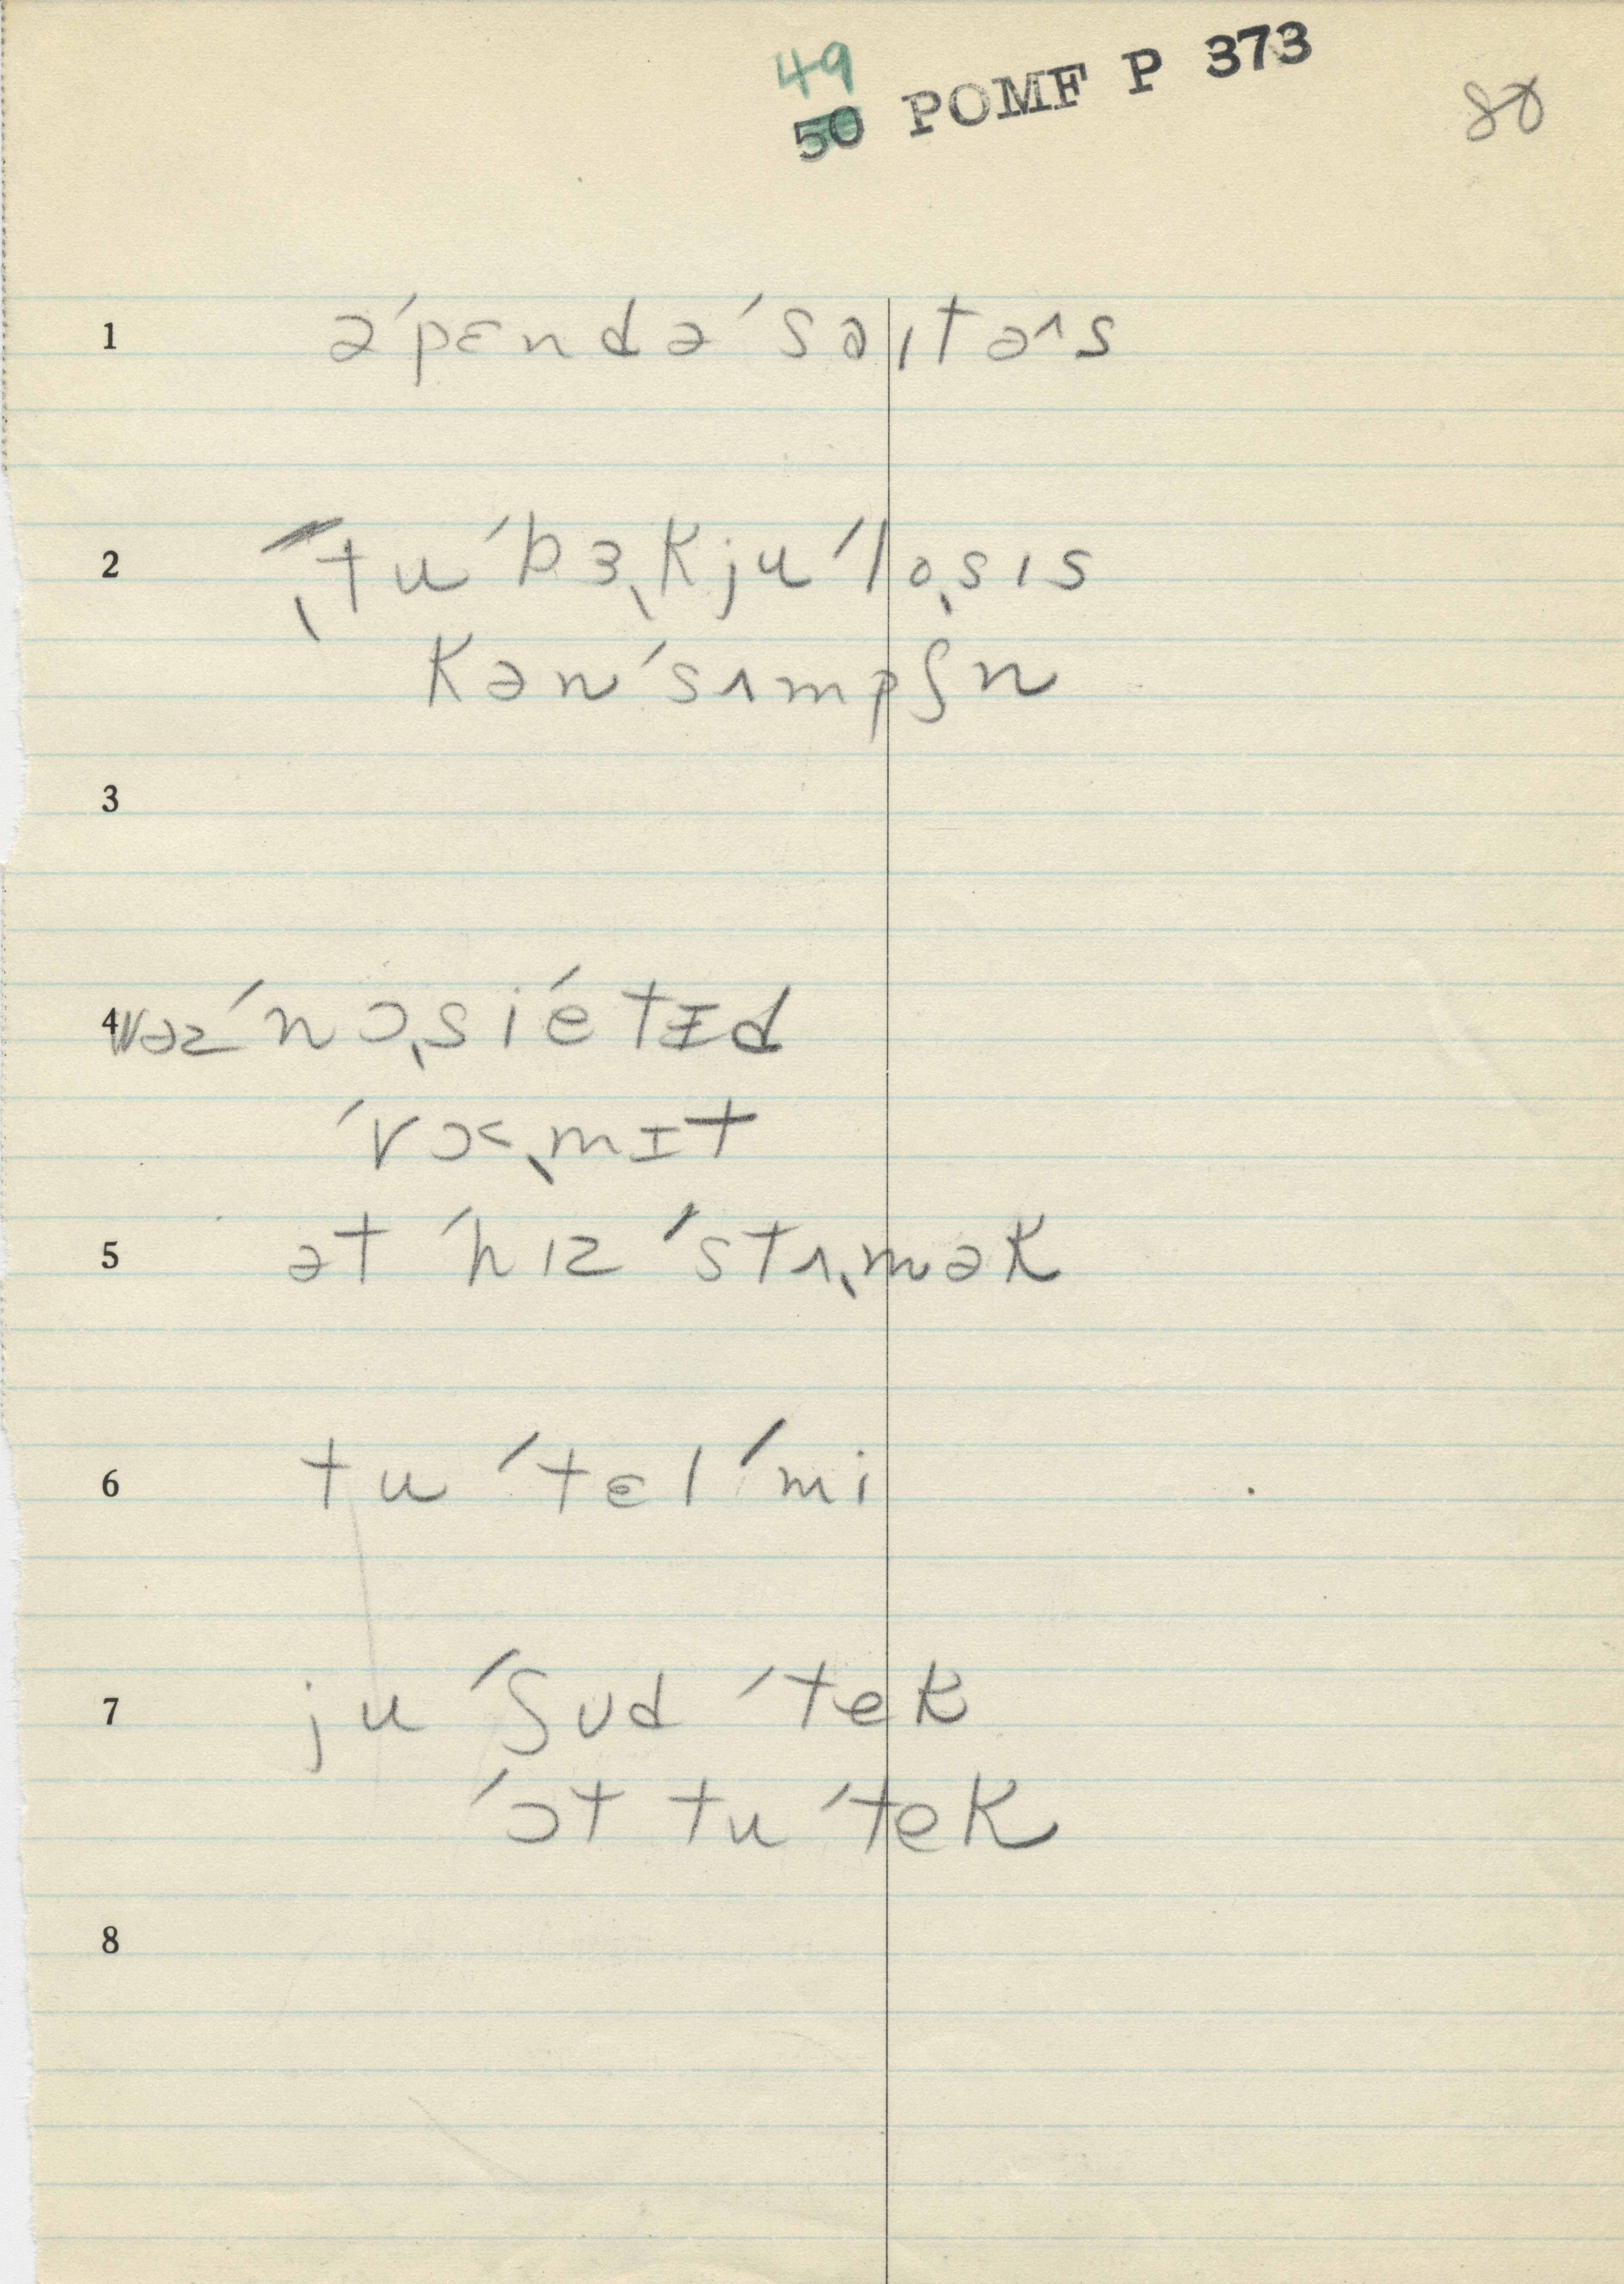 49
50 POMF P 373
80
1 əˊpɛndəˊsaɪtəˆs
2 ˎtuˊbɜˎkjuˊloˎsɪs
kənˊsʌmpʃn
3
4 wəzˊnɔˎsiˊetɪd
ˊvɔˎmɪt
5 ət ˊhɪz ˊstʌˎmək
6 tu ˊtɛl ˊmi
7 ju ˊʃud ˊtek
ˊɔt tu ˊtek
8